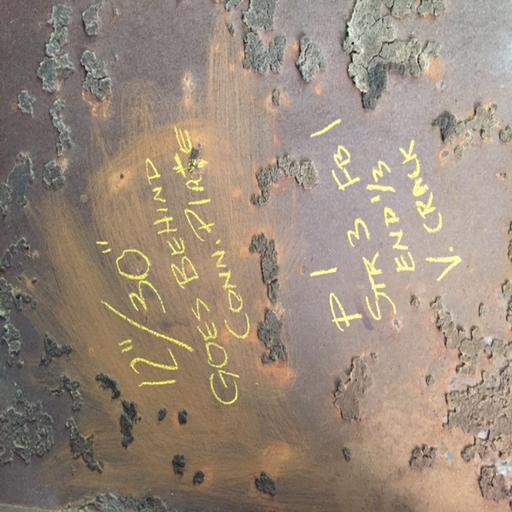 12"/30"
GOES BEHIND
CONN. PLATE
P 1 FB 1
STR 3
END 1/3
V. CRACK